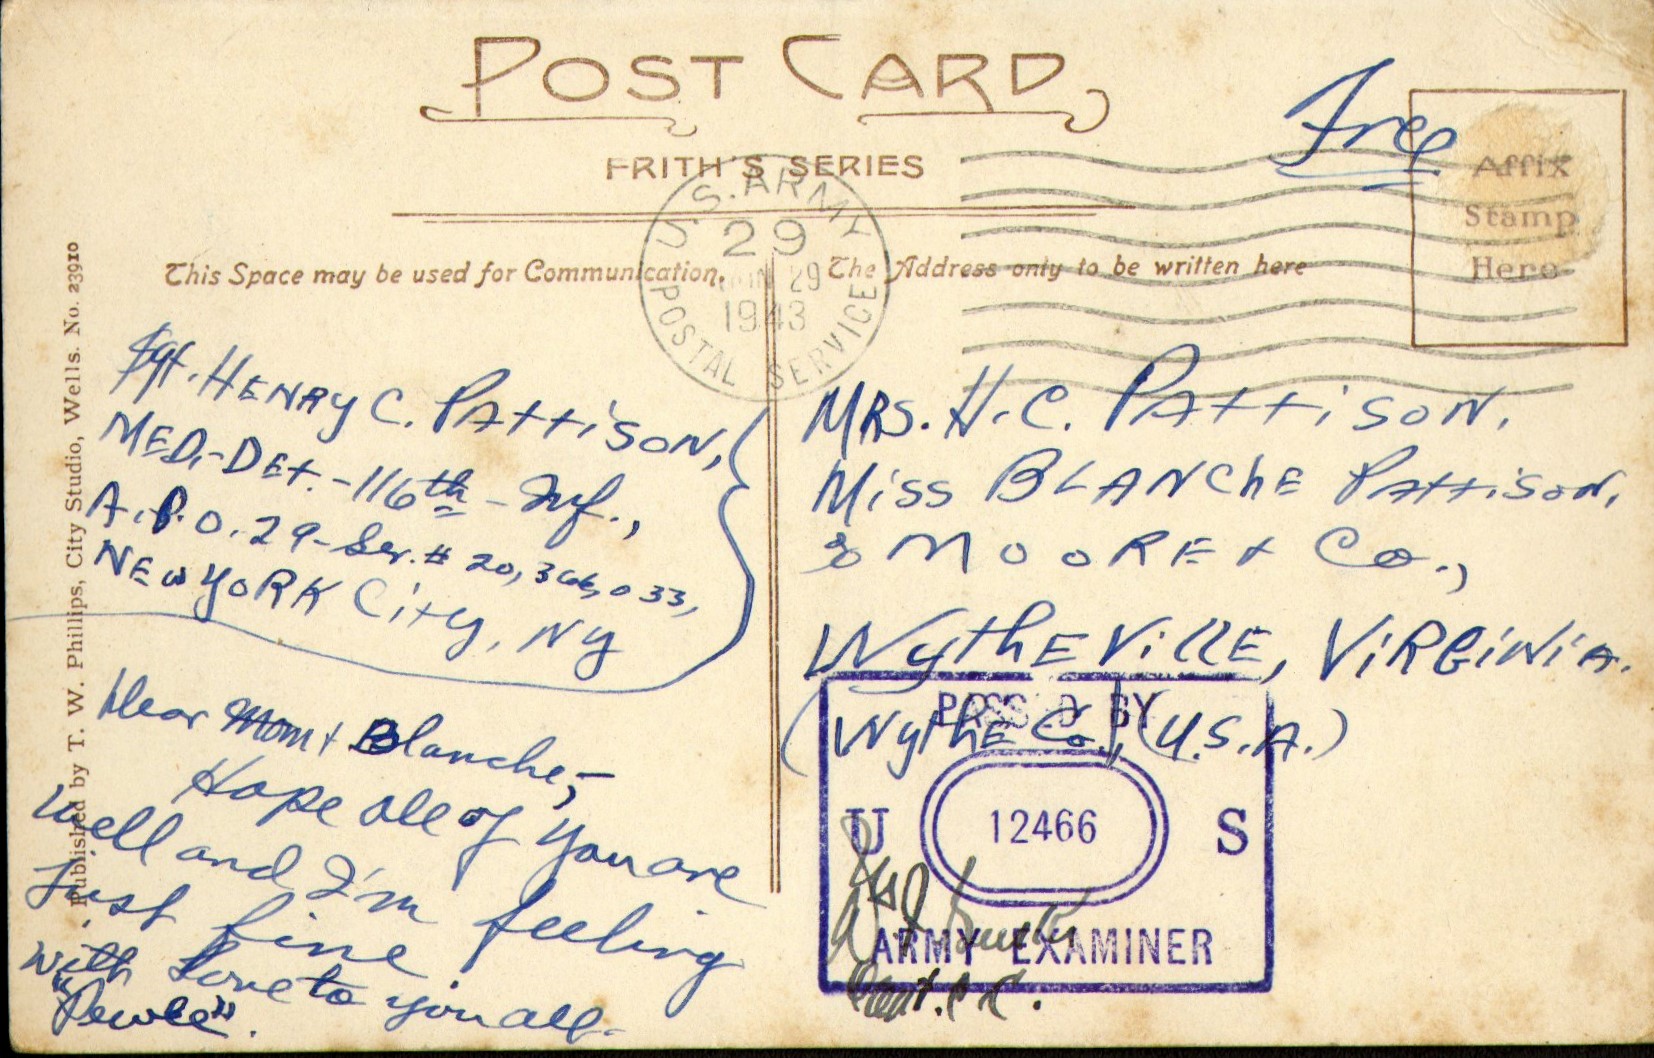 POST CARD
FRITH'S SERIES
Free
Affix
Stamp
Here
U.S. ARMY
29
JUN 29
1943
POSTAL SERVICE
This Space may be used for Communication.
The Address only to be written here
Published by T. W. Phillips, City Studio, Wells. No. 23910
Sgt. HENRY C. PATTISON,
MED.-DET.-116th-Inf.,
A.P.O. 29-Ser.# 20,366,033,
NEW YORK City, NY
Dear Mom + Blanche,-
Hope all of you are
well and I'm feeling
just fine
with Love to you all.
"Pewee".
MRS. H.C. PATTISON,
Miss BLANCHE PATTISON,
% MOORE + Co.,
WythEVillE, VIRGINIA.
(WythE Co.), (U.S.A.)
PASSED BY
U 12466 S
ARMY EXAMINER